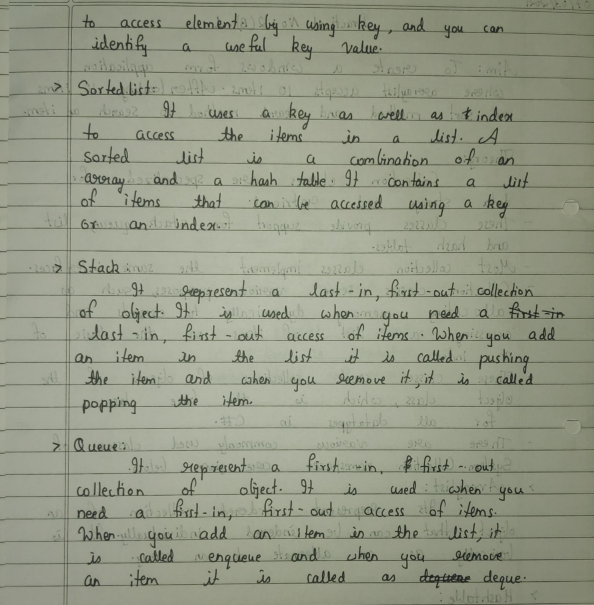 to access element by using key, and you can
identify a useful key value.
> Sorted list:-
It uses a key as well as index
to access the items in a list. A
sorted list is a combination of an
array and a hash table. It contains a list
of items that can be accessed using a key
or an index.
> Stack:
It represent a last-in, first-out collection
of object. It is used when you need a first-in
last-in, first-out access of items. When you add
an item in the list it is called pushing
the item and when you remove it, it is called
popping the item.
> Queue:
It represent a first-in, first-out
collection of object. It is used when you
need a first-in, first-out access of items.
When you add an item in the list, it
is called enqueue and when you remove
an item it is called as dequeue deque.